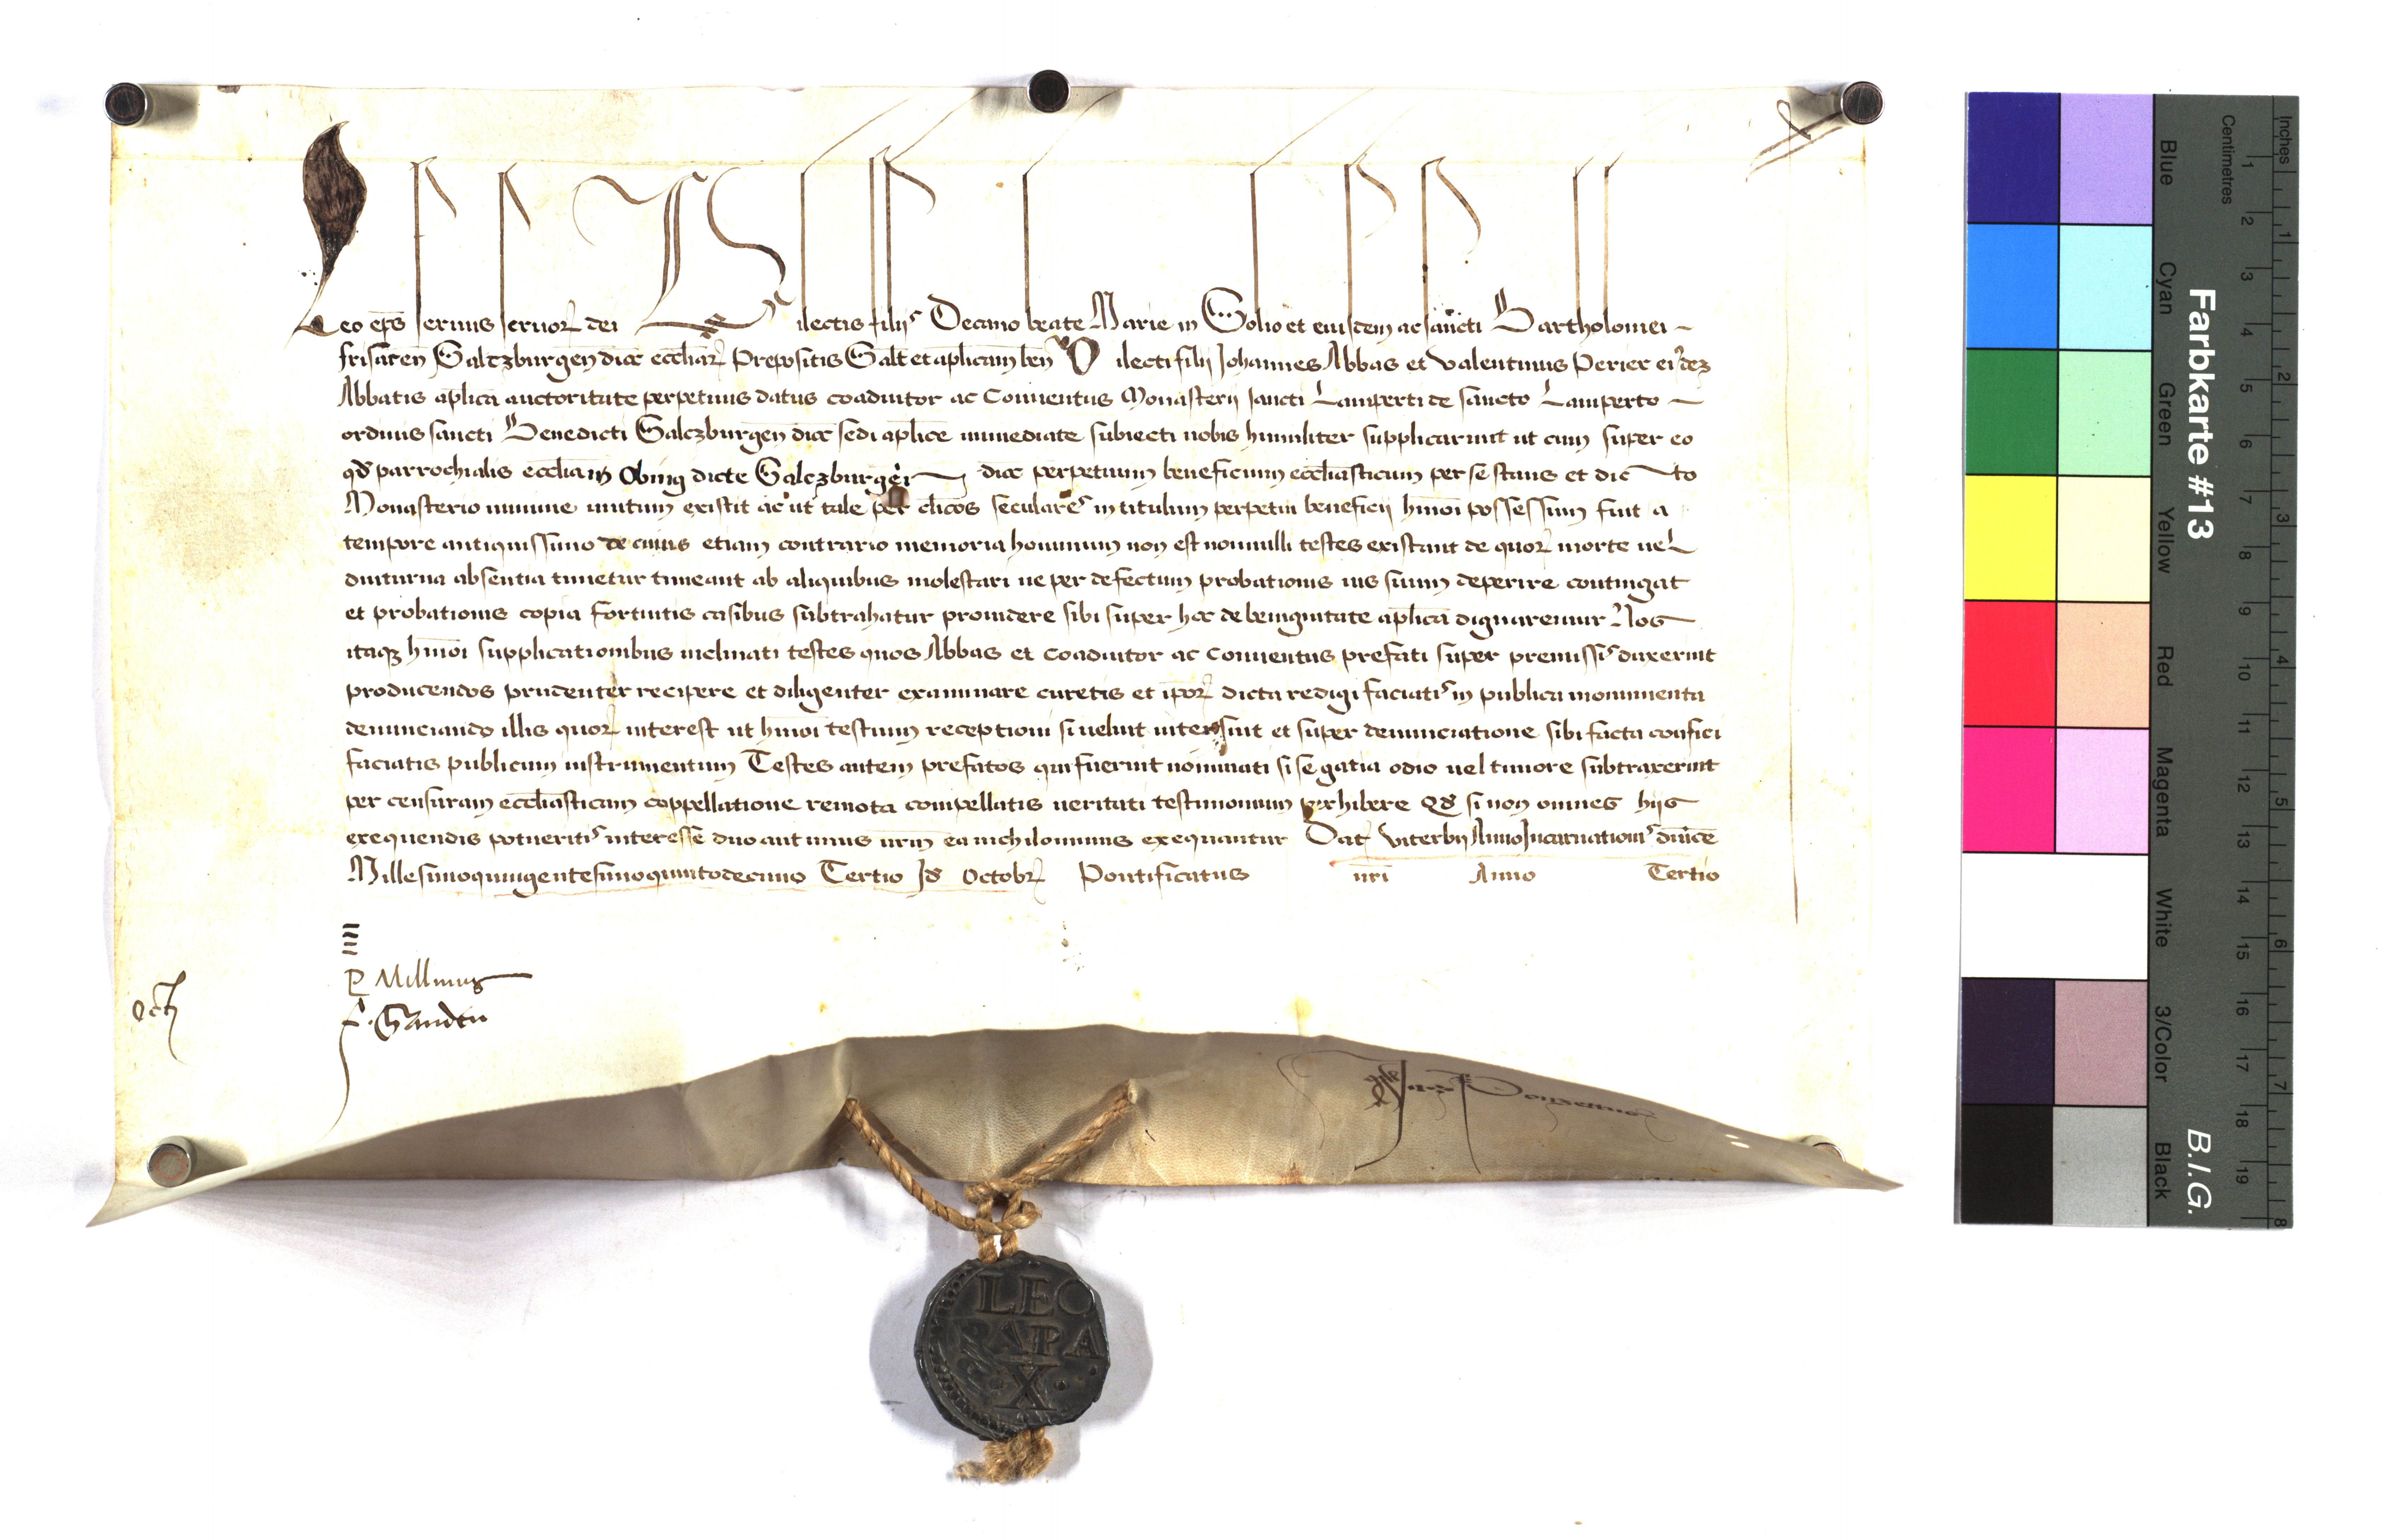 Leo ep̄s seruus seruor̄ dei Dilectis filiis Decano beate Marie in Solio et eiusdem ac sancti Bartholomei
frisacen̄ Saltzburgen̄ dioc̄ eccl̄iar̄ Prepositis Salt̄ et ap̄licam ben̄ Dilecti filii Johannes Abbas et Valentinus Perier eiusdem
Abbatis ap̄lica auctoritate perpetuus datus coadiutor ac Conuentus Monasterii sancti Lamperti de sancto Lamperto
ordinis sancti Benedicti Salczburgen̄ dioc̄ sedi ap̄lice immediate subiecti nobis humiliter supplicarunt ut cum super eo
qd̄ parrochialis eccl̄ia in Obing dicte Salczburgen̄ dioc̄ perpetuum beneficium eccl̄iasticum per se stans et dicto
Monasterio minime unitum existit ac ut tale per cl̄icos seculares in titulum perpetui beneficii hm̄oi possessum fuit a
tempore antiquissimo de cuius etiam contrario memoria hominum non est nonnulli testes existant de quor̄ morte uel
diuturna absentia timetur timeant ab aliquibus molestari ne per defectum probationis ius suum deperire contingat
et probationis copia fortuitis casibus subtrahatur prouidere sibi super hoc de benignitate ap̄lica dignaremur Nos
itaqz hm̄oi supplicationibus inclinati testes quos Abbas et Coadiutor ac Conuentus prefati super premissis duxerint
producendos prudenter recipere et diligenter examinare curetis et ip̄or̄ dicta redigi faciatis in publica monumenta
denunciando illis quor̄ interest ut hm̄oi testium receptioni si uelint intersint et super denunciatione sibi facta confici
faciatis publicum instrumentum Testes autem prefatos qui fuerint nominati si se gatia odio uel timore subtraxerint
per censuram eccl̄iasticam coppellatione remota compellatis ueritati testimonium perhibere Qd̄ si non omnes hiis
exequendis potueritis interesse duo aut unus ur̄m ea nichilominus exequantur Dat̄ Viterbii Anno Incarnationis dn̄ice
Millesimoquingentesimoquintodecimo Tertio Id̄ Octobr̄ Pontificatus nr̄i Anno Tertio
P Millinus
Octz
LEO
PAPA
X
Farbkarte #13
B.I.G.
Inches
Centimetres
1 2 3 4 5 6 7 8
1 2 3 4 5 6 7 8 9 10 11 12 13 14 15 16 17 18 19
Blue
Cyan
Green
Yellow
Red
Magenta
White
3/Color
Black